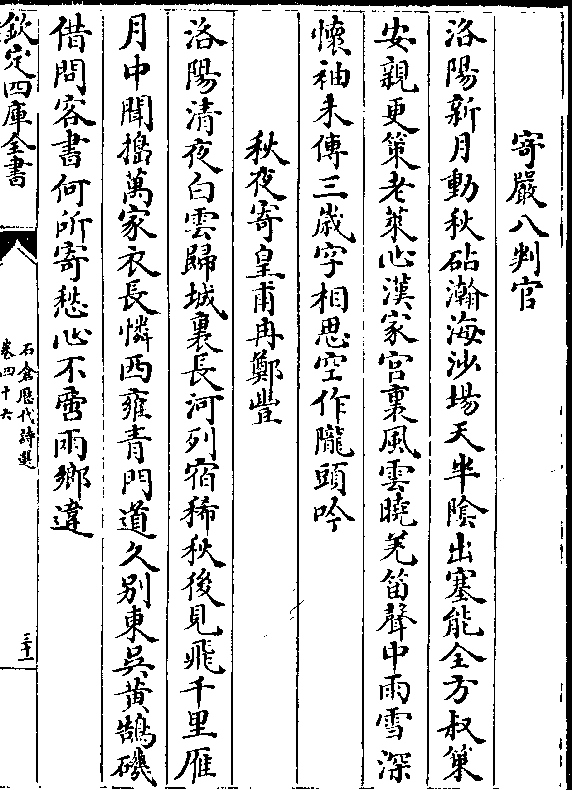 寄嚴八判官
洛陽新月動秋砧瀚海沙場天半陰出塞能全方叔策
安親更策老萊心漢家宮裏風雲曉羌笛聲中雨雪深
懷袖未傳三歳字相思空作隴頭吟
秋夜寄皇甫冉鄭豐
洛陽清夜白雲歸城裏長河列宿稀秋後見飛千里雁
月中聞搗萬家衣長憐西雍青門道久别東吳黄鵠磯
借問客書何所寄愁心不啻兩鄉違
欽定四庫全書
石倉歴代詩選
卷四十六
三十一